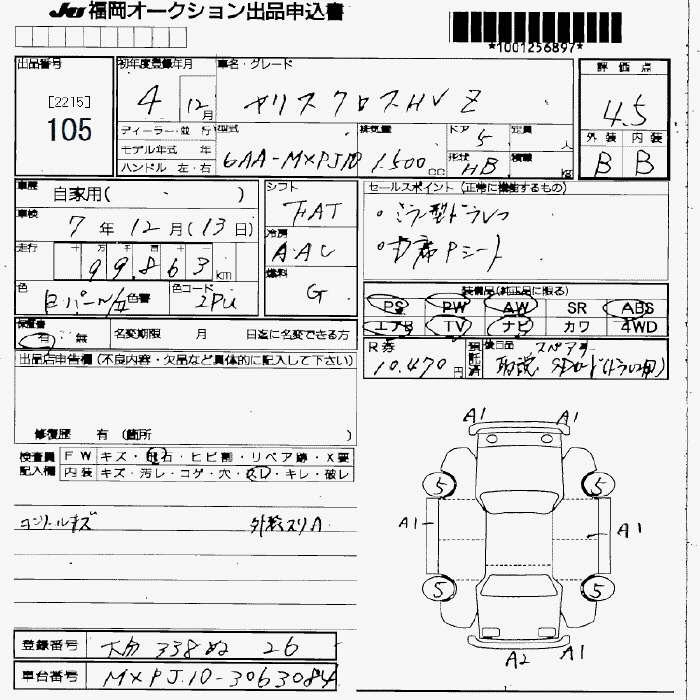 JU 福岡オークション出品申込書
*1001256897*
出品番号 初年度登録年月 車名・グレード 評価点
[2215]
105
4 12月 ヤリスクロスHV Z 4.5
ディーラー・並行 型式 排気量 ドア 5 定員 人 外装 内装
モデル年式 年
ハンドル 左・右 6AA-MXPJ10 1500cc 形状 HB 積載 kg B B
車歴 自家用( ) シフト FAT セールスポイント (正常に機能するもの)
車検 7年12月(13日) 冷房 AAC
走行 十 万 千 百 十 99,863km 燃料 G
色 色替 色コード 2PU
装備品(純正品に限る)
PS PW AW SR ABS
エアB TV ナビ カワ 4WD
保証書 有・無 名変期限 月 日迄に名変できる方
R券 10,470円 後日品 取説
出品店申告欄 (不良内容・欠品など具体的に記入して下さい)
修復歴 有 (箇所 )
検査員 記入欄
FW キズ・飛石・ヒビ割・リペア跡・X要
内装 キズ・汚レ・コゲ・穴・スレ・キレ・破レ
コンソールキズ 外装スリA
A1 A1
5 5
A1 A1
5 5
A2 A1
登録番号 大分 338 ぬ 26
車台番号 MXPJ10-3063084